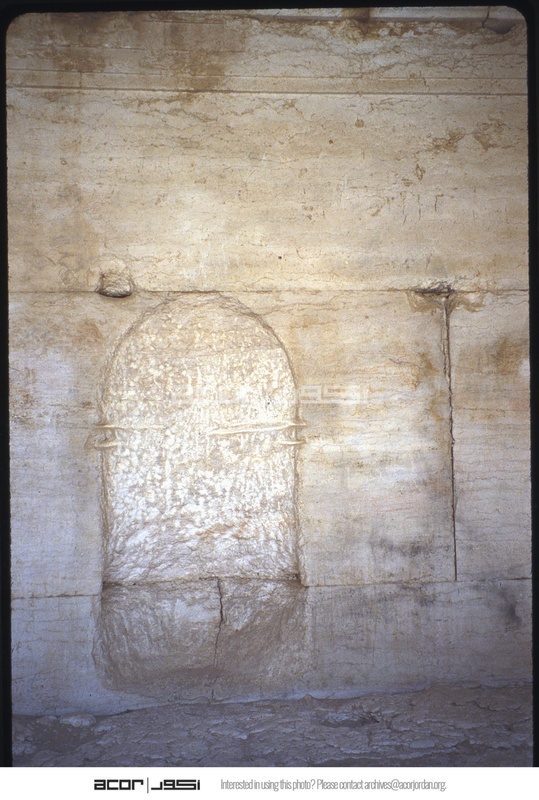 acor | اكور
Interested in using this photo? Please contact archives@acorjordan.org.